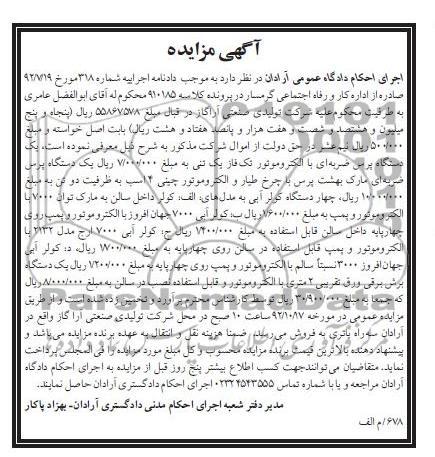 آگهی مزایده
اجرای احکام دادگاه عمومی آرادان در نظر دارد به موجب دادنامه اجراییه شماره ۳۱۸ مورخ ۹۲/۷/۱۹
صادره از اداره کار و رفاه اجتماعی گرمسار در پرونده کلاسه ۹۱۰۱۸۵ محکوم له آقای ابوالفضل عامری
به طرفیت محکوم علیه شرکت تولیدی صنعتی آراگاز در قبال مبلغ ۵۵۸۶۷۵۷۸ ریال (پنجاه و پنج
میلیون و هشتصد و شصت و هفت هزار و پانصد و هفتاد و هشت ریال) بابت اصل خواسته و مبلغ
۵۰۰/۰۰۰ ریال نیم عشر حق دولت از اموال شرکت مذکور به شرح ذیل معرفی نموده است، یک
دستگاه پرس ضربه‌ای با الکتروموتور تک فاز یک تنی به مبلغ ۷/۰۰۰/۰۰۰ ریال یک دستگاه پرس
ضربه‌ای مارک بهشت پرس با چرخ طیار و الکتروموتور چینی ۴ اسب به ظرفیت دو تن به مبلغ
۱۰/۰۰۰/۰۰۰ ریال، چهار دستگاه کولر آبی به مدل‌های، الف: کولر داخل سالن به مارک توان ۷۰۰۰ با
الکتروموتور و پمپ به مبلغ ۱/۶۰۰/۰۰۰ ریال ب: کولر آبی ۷۰۰۰ جهان افروز با الکتروموتور و پمپ روی
چهارپایه داخل سالن قابل استفاده به مبلغ ۱/۴۰۰/۰۰۰ ریال ج: کولر آبی ۷۰۰۰ ارج مدل ۲۱۳۲ با
الکتروموتور و پمپ قابل استفاده در سالن روی چهارپایه به مبلغ ۱/۷۰۰/۰۰۰ ریال، د: کولر آبی
جهان افروز ۳۰۰۰ نسبتاً سالم با الکتروموتور و پمپ روی چهارپایه به مبلغ ۱/۲۰۰/۰۰۰ ریال یک دستگاه
برش برقی ورق تقریبی ۲ متری با الکتروموتور و قابل استفاده نصب در سالن به مبلغ ۸/۰۰۰/۰۰۰ ریال
که جمعا به مبلغ ۳۰/۹۰۰/۰۰۰ ریال توسط کارشناس محترم برآورد و تخمین زده شده است و از طریق
مزایده عمومی در مورخه ۹۲/۱۰/۸۷ ساعت ۱۰ صبح در محل شرکت تولیدی صنعتی آراگاز واقع در
آرادان سه راه باتری به فروش می‌رسد، ضمنا هزینه نقل و انتقال به عهده برنده مزایده می‌باشد و
پیشنهاد دهنده بالاترین قیمت برنده مزایده محسوب و کل مبلغ مورد مزایده را فی المجلس پرداخت
نماید. متقاضیان می‌توانند جهت کسب اطلاع بیشتر پنج روز قبل از مزایده به اجرای احکام دادگاه
آرادان مراجعه و یا با شماره تماس ۰۲۳۲۴۵۴۳۵۵۵ اجرای احکام دادگستری آرادان حاصل نمایند.
مدیر دفتر شعبه اجرای احکام مدنی دادگستری آرادان- بهزاد پاکار
۶۷۸/م الف